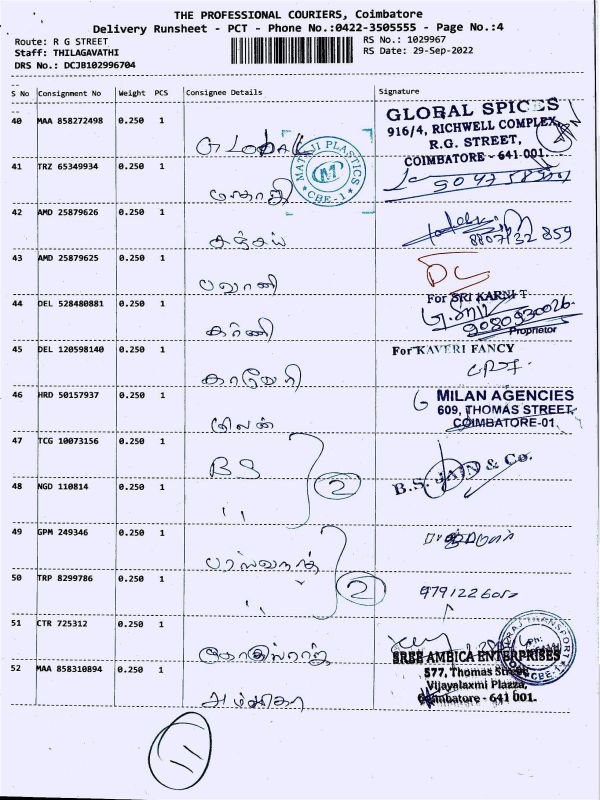 THE PROFESSIONAL COURIERS, Coimbatore
Delivery Runsheet - PCT - Phone No.:0422-3505555 - Page No.:4
Route: R G STREET
Staff: THILAGAVATHI
DRS No.: DCJB102996704
RS No.: 1029967
RS Date: 29-Sep-2022
S No Consignment No Weight PCS Consignee Details Signature
40 MAA 858272498 0.250 1
GLOBAL
GLOBAL SPICES
916/4, RICHWELL COMPLEX
R.G. STREET,
COIMBATORE - 641 001.
41 TRZ 65349934 0.250 1
MATAJI PLASTICS
CBE-1
42 AMD 25879626 0.250 1
சஞ்சய்
8807132859
43 AMD 25879625 0.250 1
பவானி
DC
44 DEL 528480881 0.250 1
கர்ணி
For SRI KARNI T
Proprietor
45 DEL 120598140 0.250 1
காவேரி
For KAVERI FANCY
46 HRD 50157937 0.250 1
மிலன்
MILAN AGENCIES
609, THOMAS STREET
COIMBATORE-01
47 TCG 10073156 0.250 1
BS
B.S. JAIN & Co.
48 NGD 110814 0.250 1
"
2
49 GPM 249346 0.250 1
பார்ஸ்வநாத்
50 TRP 8299786 0.250 1
"
2
51 CTR 725312 0.250 1
52 MAA 858310894 0.250 1
அம்பிகா
SREE AMBICA ENTERPRISES
577, Thomas Street
Vijayalaxmi Plazza,
Coimbatore - 641 001.
11